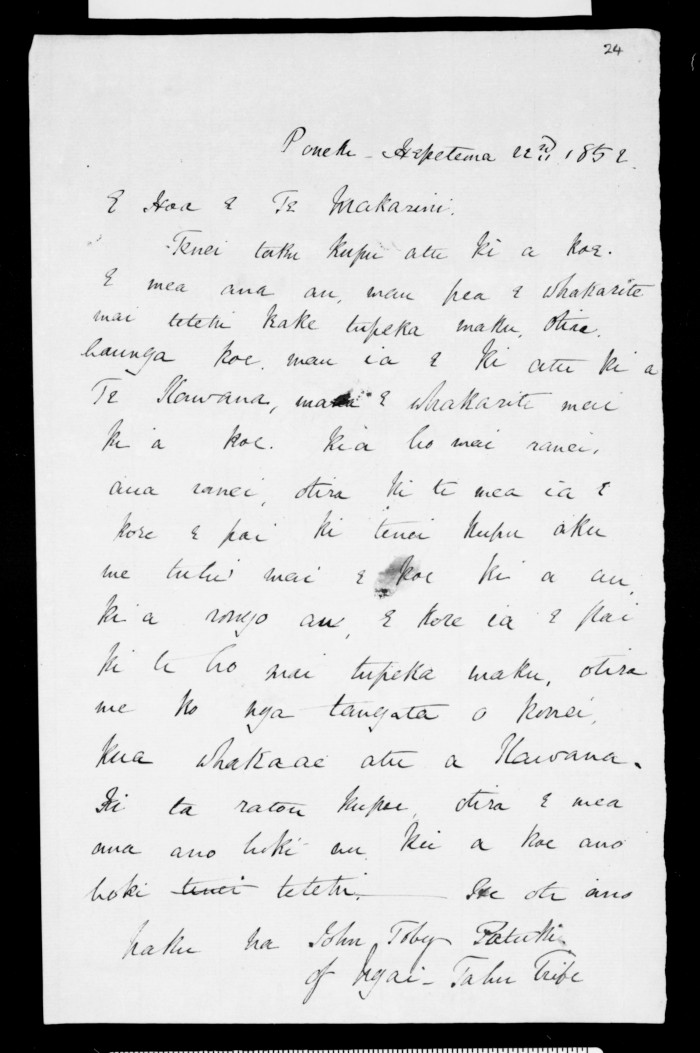 24
Poneke - Hepetema 22nd 1852.
E Hoa e Te Makarini.
Tenei taku kupu atu ki a koe.
E mea ana au, mau pea e whakarite
mai tetehi kake tupeka maku, otira,
haunga koe, mau ia e ki atu ki a
Te Kawana, mana e whakarite mai
ki a koe. kia ho mai ranei,
aua ranei, otira ki te mea ia e
kore e pai ki tenei kupu aku
me tuhi mai e koe ki a au,
ki a rongo au, e kore ia e pai
ki te ho mai tupeka maku, otira
me ko nga tangata o konei,
kua whakaae atu a Kawana.
Ki ta ratou kupu, otira e mea
ana ano hoki au, kei a koe ano
hoki tenei tetehi. Heoti ano
naku na John Toby Patuki
of Ngai-Tahu Tribe